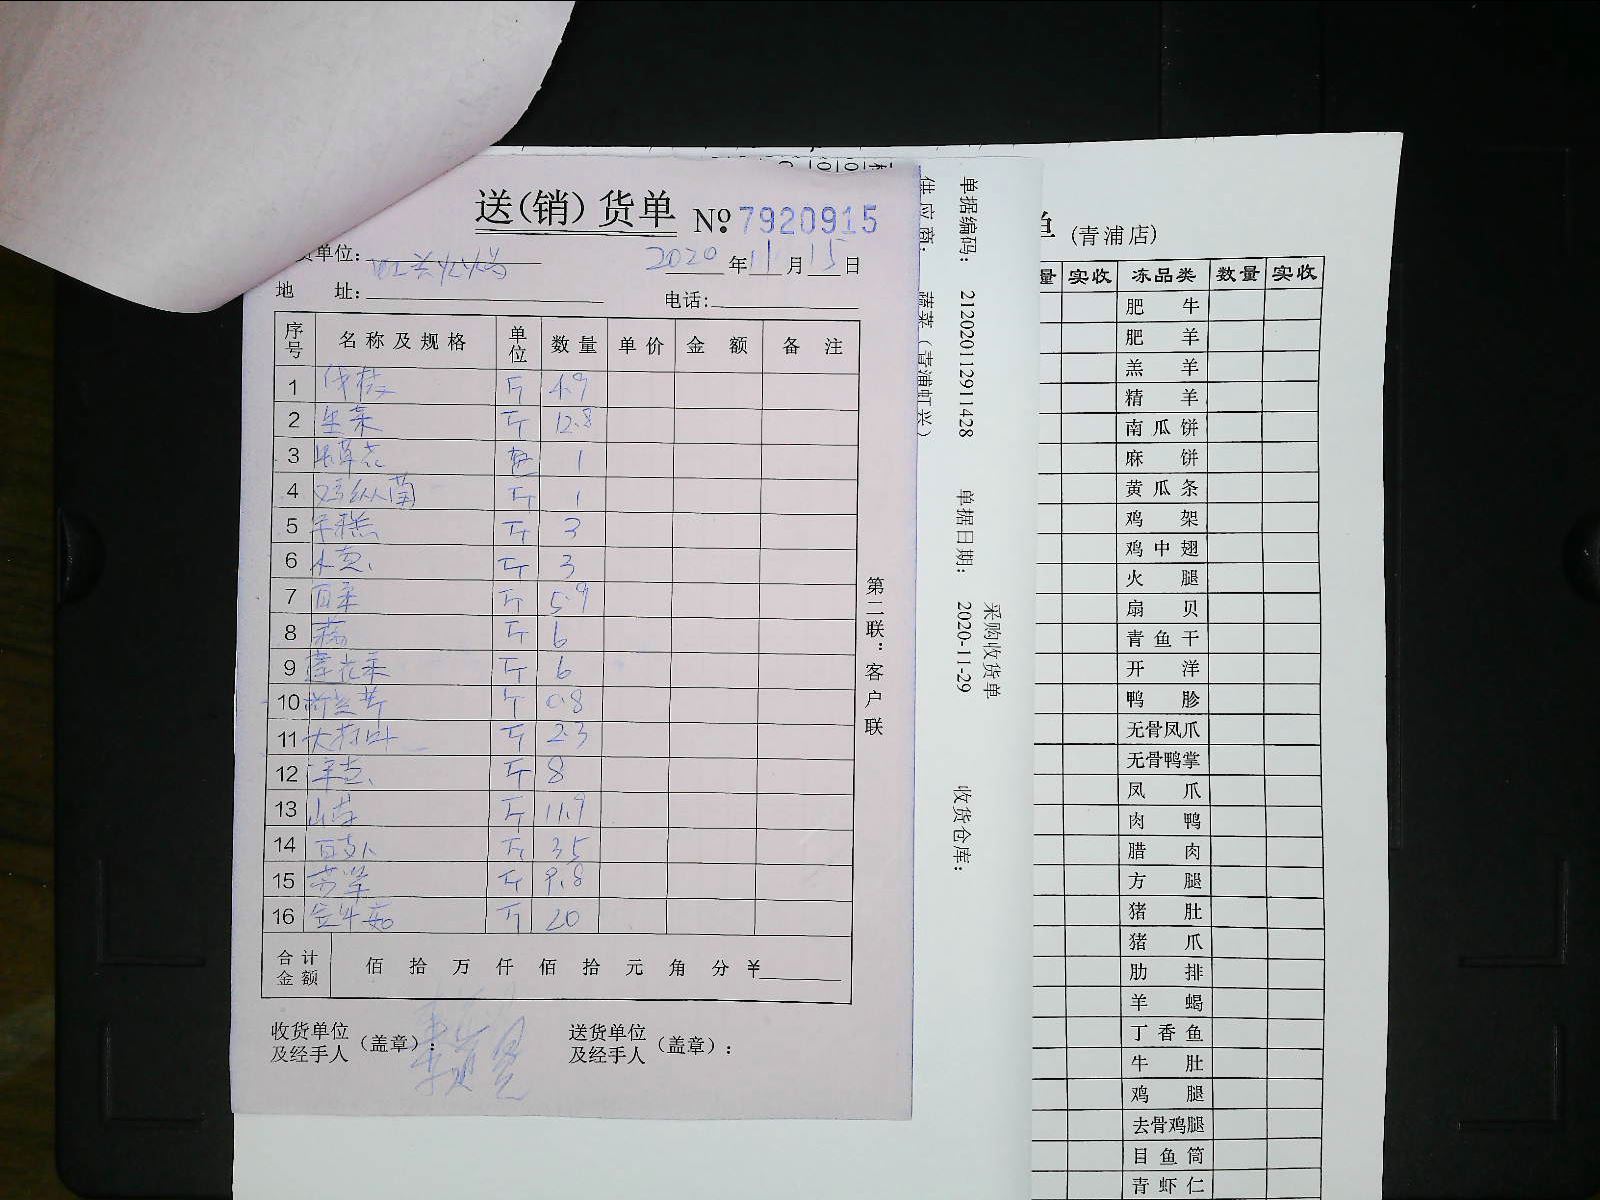 送(销)货单 №:7920915
货单位:
2020年11月15日
地 址: 电话:
序号 名称及规格 单位 数量 单价 金额 备注
1 斤 4.9
2 生菜 斤 12.8
3 1
4 鸡枞菌 斤 1
5 年糕 斤 3
6 斤 3
7 白菜 斤 5.9
8 斤 6
9 斤 6
10 斤 0.8
11 斤 2.3
12 斤 8
13 山药 斤 11.9
14 斤 3.5
15 斤 9.8
16 金针菇 斤 20
合计金额 佰 拾 万 仟 佰 拾 元 角 分 ¥
收货单位及经手人(盖章):
送货单位及经手人(盖章):
第二联:客户联
供应商: 蔬菜(青浦虹兴)
单据编码: 21202011291​1428
单据日期: 2020-11-29
收货仓库:
采购收货单
单 (青浦店)
量 实收 冻品类 数量 实收
肥牛
肥羊
羔羊
精羊
南瓜饼
麻饼
黄瓜条
鸡架
鸡中翅
火腿
扇贝
青鱼干
开洋
鸭胗
无骨凤爪
无骨鸭掌
凤爪
肉鸭
腊肉
方腿
猪肚
猪爪
肋排
羊蝎
丁香鱼
牛肚
鸡腿
去骨鸡腿
目鱼筒
青虾仁